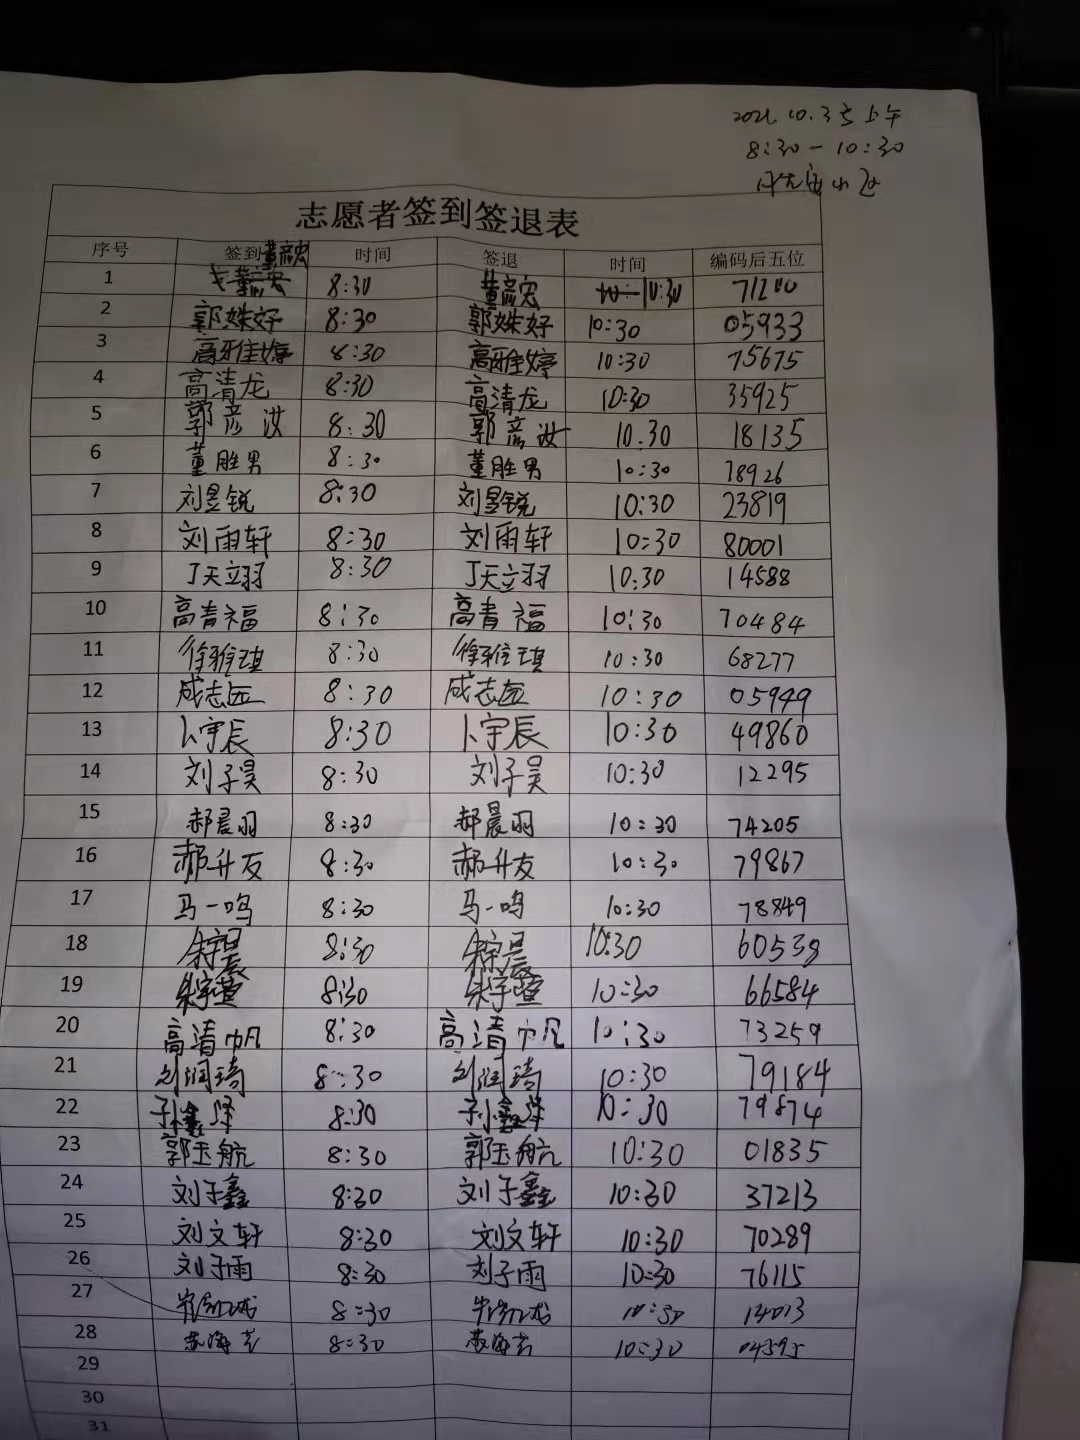 2021.10.3号上午
8:30-10:30
志愿者签到签退表
序号 签到 时间 签退 时间 编码后五位
1 8:30 10:30 71200
2 郭姝妤 8:30 郭姝妤 10:30 05933
3 高雅婷 8:30 高雅婷 10:30 75675
4 高清龙 8:30 高清龙 10:30 35925
5 郭彦汝 8:30 郭彦汝 10:30 18135
6 董胜男 8:30 董胜男 10:30 78926
7 刘昱锐 8:30 刘昱锐 10:30 23819
8 刘雨轩 8:30 刘雨轩 10:30 80001
9 丁天立羽 8:30 丁天立羽 10:30 14588
10 高青福 8:30 高青福 10:30 70484
11 徐雅琪 8:30 徐雅琪 10:30 68277
12 成志远 8:30 成志远 10:30 05949
13 卜宇辰 8:30 卜宇辰 10:30 49860
14 刘子昊 8:30 刘子昊 10:30 12295
15 郝晨羽 8:30 郝晨羽 10:30 74205
16 郝升友 8:30 郝升友 10:30 79867
17 马一鸣 8:30 马一鸣 10:30 78849
18 朱宇晨 8:30 朱宇晨 10:30 60538
19 朱宇萱 8:30 朱宇萱 10:30 66584
20 高清帆 8:30 高清帆 10:30 73259
21 刘润琦 8:30 刘润琦 10:30 79184
22 8:30 10:30 79874
23 郭玉航 8:30 郭玉航 10:30 01835
24 刘子鑫 8:30 刘子鑫 10:30 37213
25 刘文轩 8:30 刘文轩 10:30 70289
26 刘子雨 8:30 刘子雨 10:30 76115
27 8:30 14013
28 8:30 10:30
29
30
31